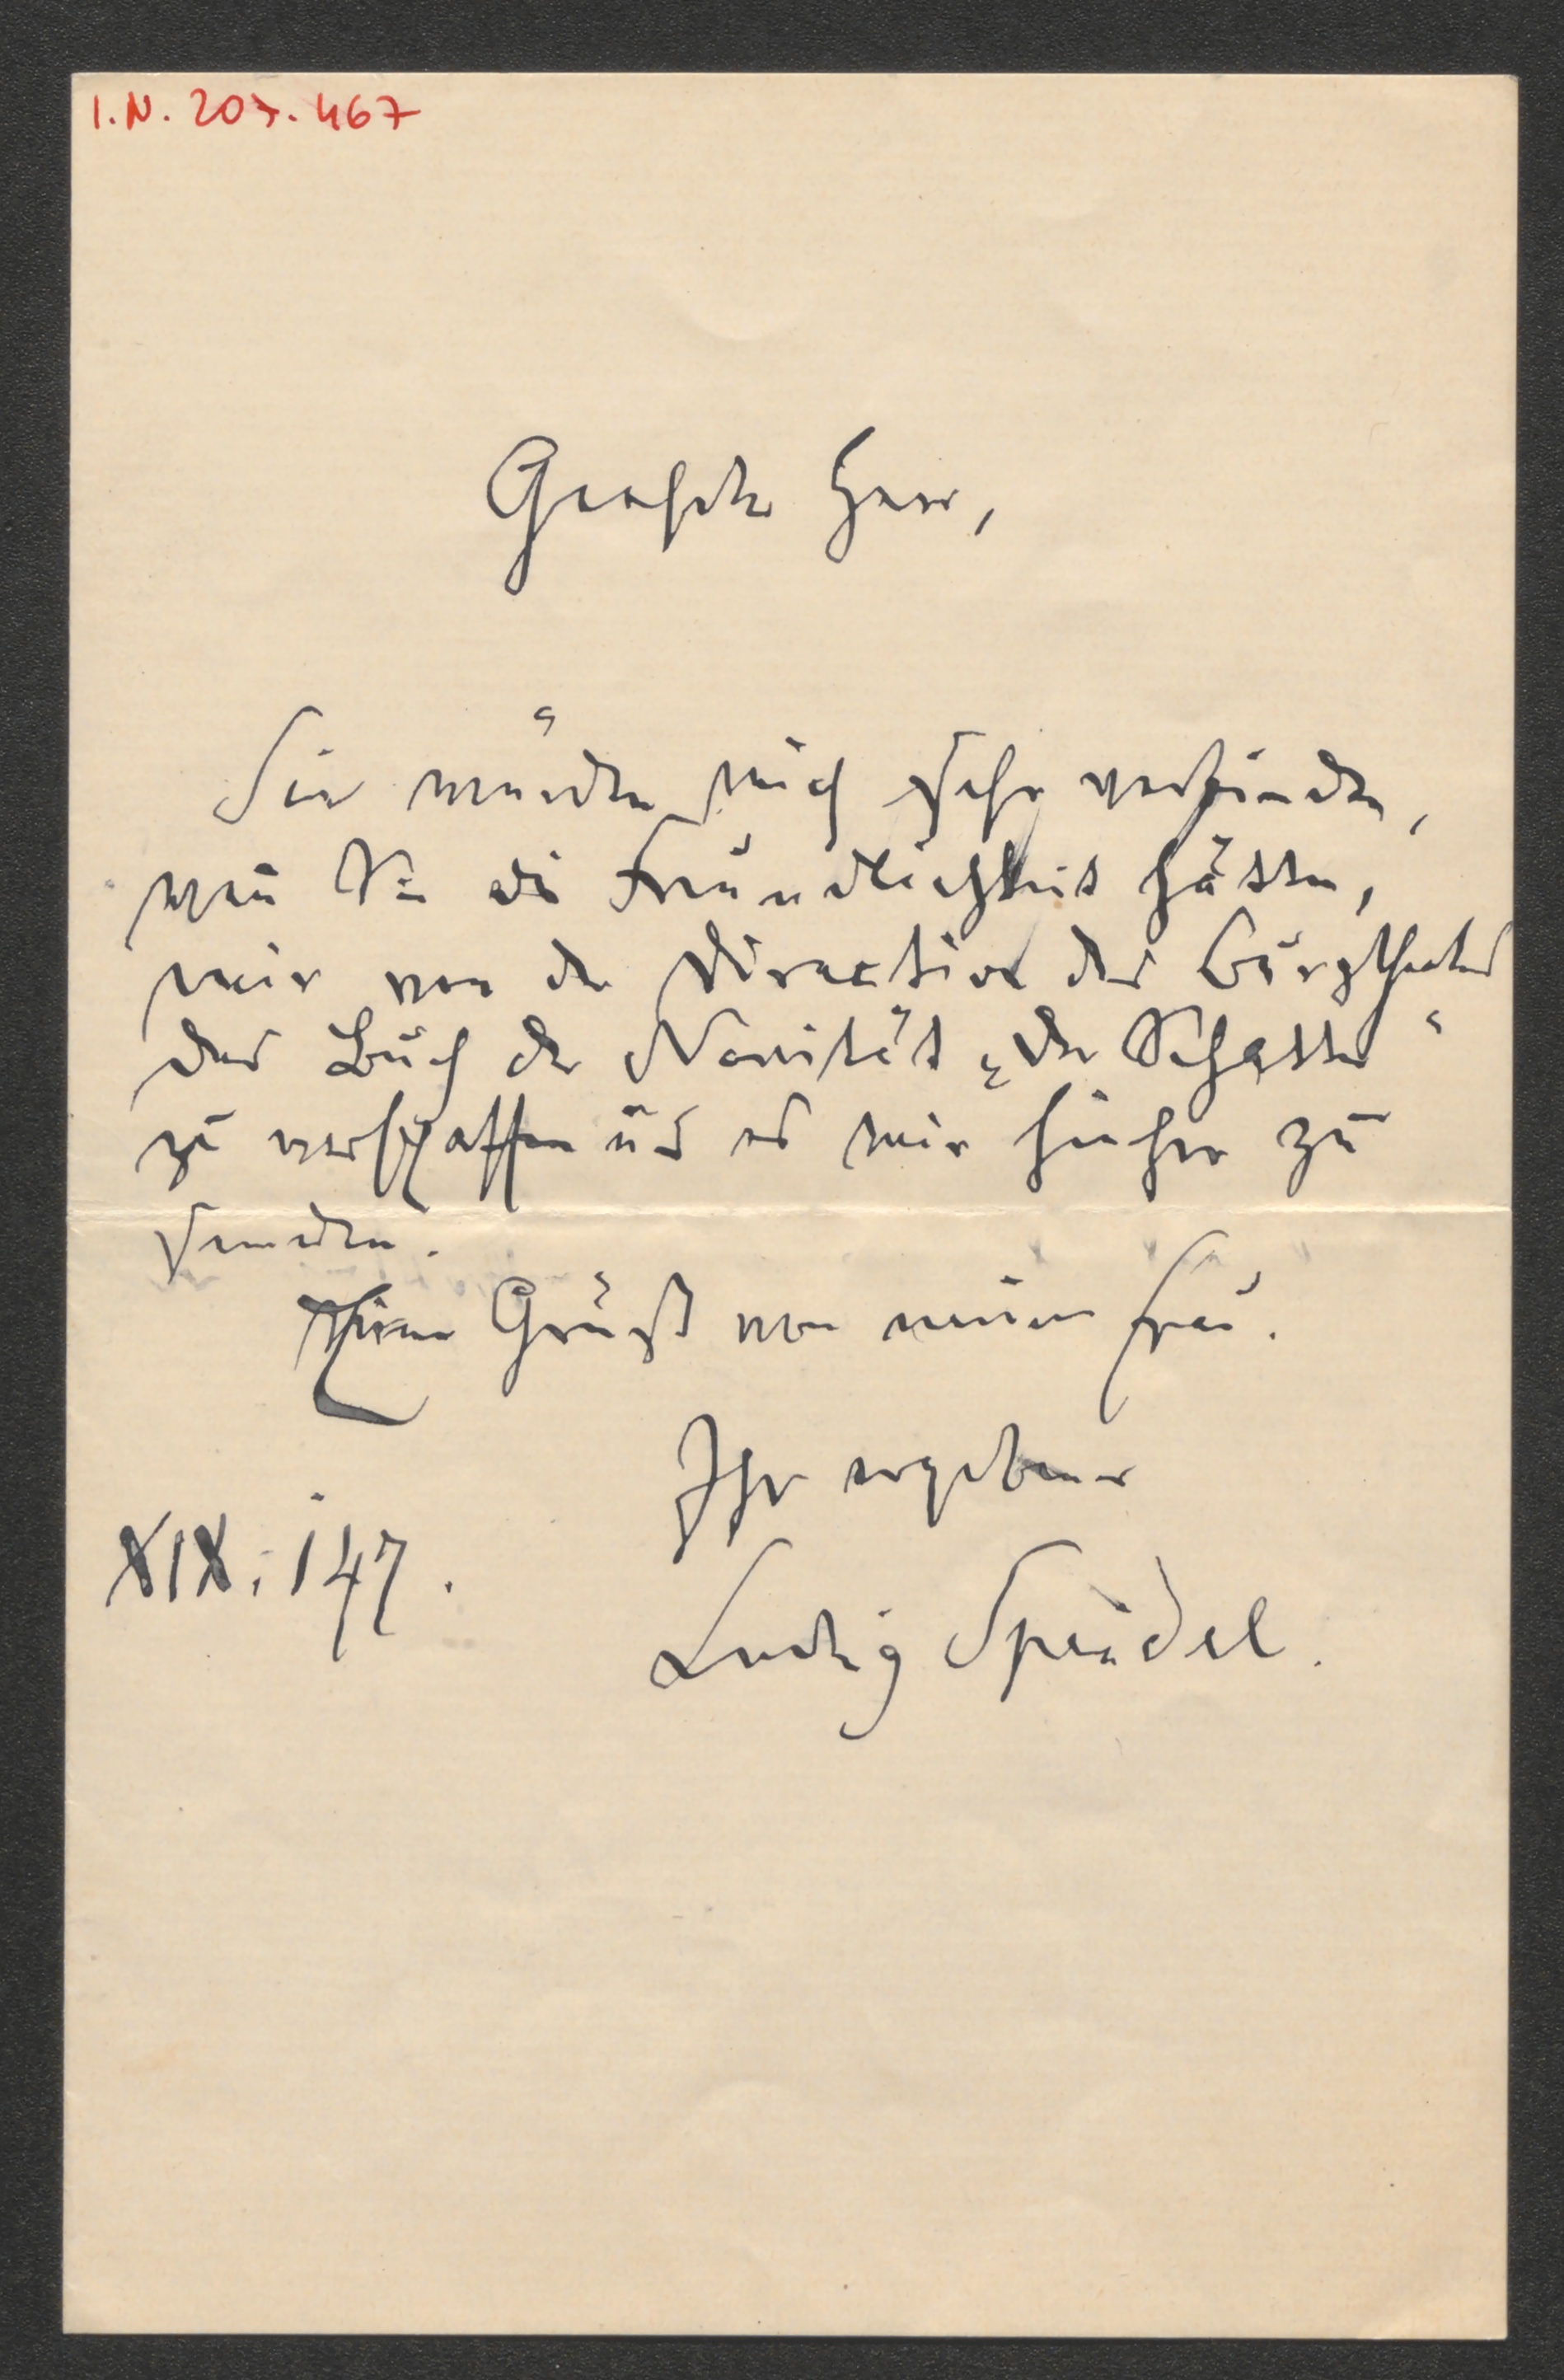 I.N. 207.467
Geehrter Herr,
Sie würden mich sehr verbinden,
wenn Sie die Freundlichkeit hätten,
mir von der Direction des Burgtheaters
das Buch der Novität „Der Schatten“
zu verschaffen und es mir hieher zu
senden.
Grüße von meiner Frau.
Ihr ergebener
Ludwig Speidel.
XIX. 147.